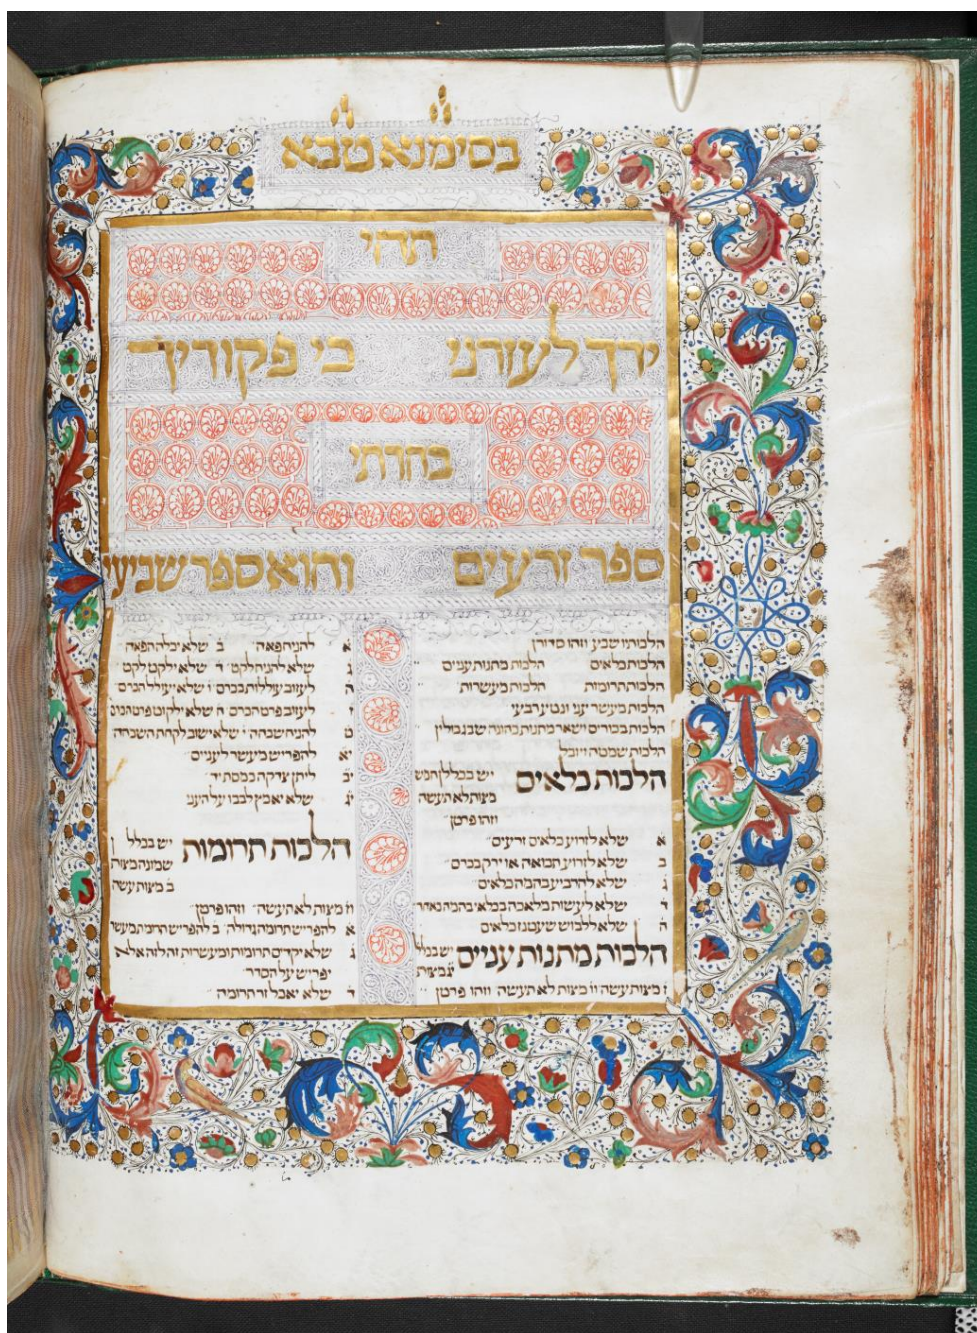 בסימנא טבא
תהי
ידך לעזרני כי פקודיך
בחרתי
ספר זרעים והוא ספר שביעי
הלכותיו שבע וזהו סדורן
הלכות כלאים הלכות מתנות עניים
הלכות תרומות הלכות מעשרות
הלכות מעשר שני ונטע רבעי
הלכות בכורים ושאר מתנות כהונה שבגבולין
הלכות שמטה ויובל
הלכות כלאים יש בכללן חמש
מצות לא תעשה
וזהו פרטן
א שלא לזרוע כלאים זרעים
ב שלא לזרוע תבואה או ירק בכרם
ג שלא להרביע בהמה כלאים
ד שלא לעשות מלאכה בכלאי בהמה כאחד
ה שלא ללבוש שעטנז כלאים
הלכות מתנות עניים יש בכלל
יג מצות
ז מצות עשה ו מצות לא תעשה וזהו פרטן
א להניח פאה ב שלא יכלה הפאה
ג שלא להניח לקט ד שלא ילקט לקט
ה לעזוב עוללות בכרם ו שלא יעולל הכרם
ז לעזוב פרט הכרם ח שלא ילקוט פרט הכרם
ט להניח שכחה י שלא ישוב לקחת השכחה
יא להפריש מעשר לעניים
יב ליתן צדקה כמסת יד
יג שלא יאמץ לבבו על העני
הלכות תרומות יש בכללן
שמונה מצות
ב מצות עשה
ו מצות לא תעשה וזהו פרטן
א להפריש תרומה גדולה ב להפריש תרומת מעשר
ג שלא יקדים תרומות ומעשרות זה לזה אלא
יפריש על הסדר
ד שלא יאכל זר תרומה